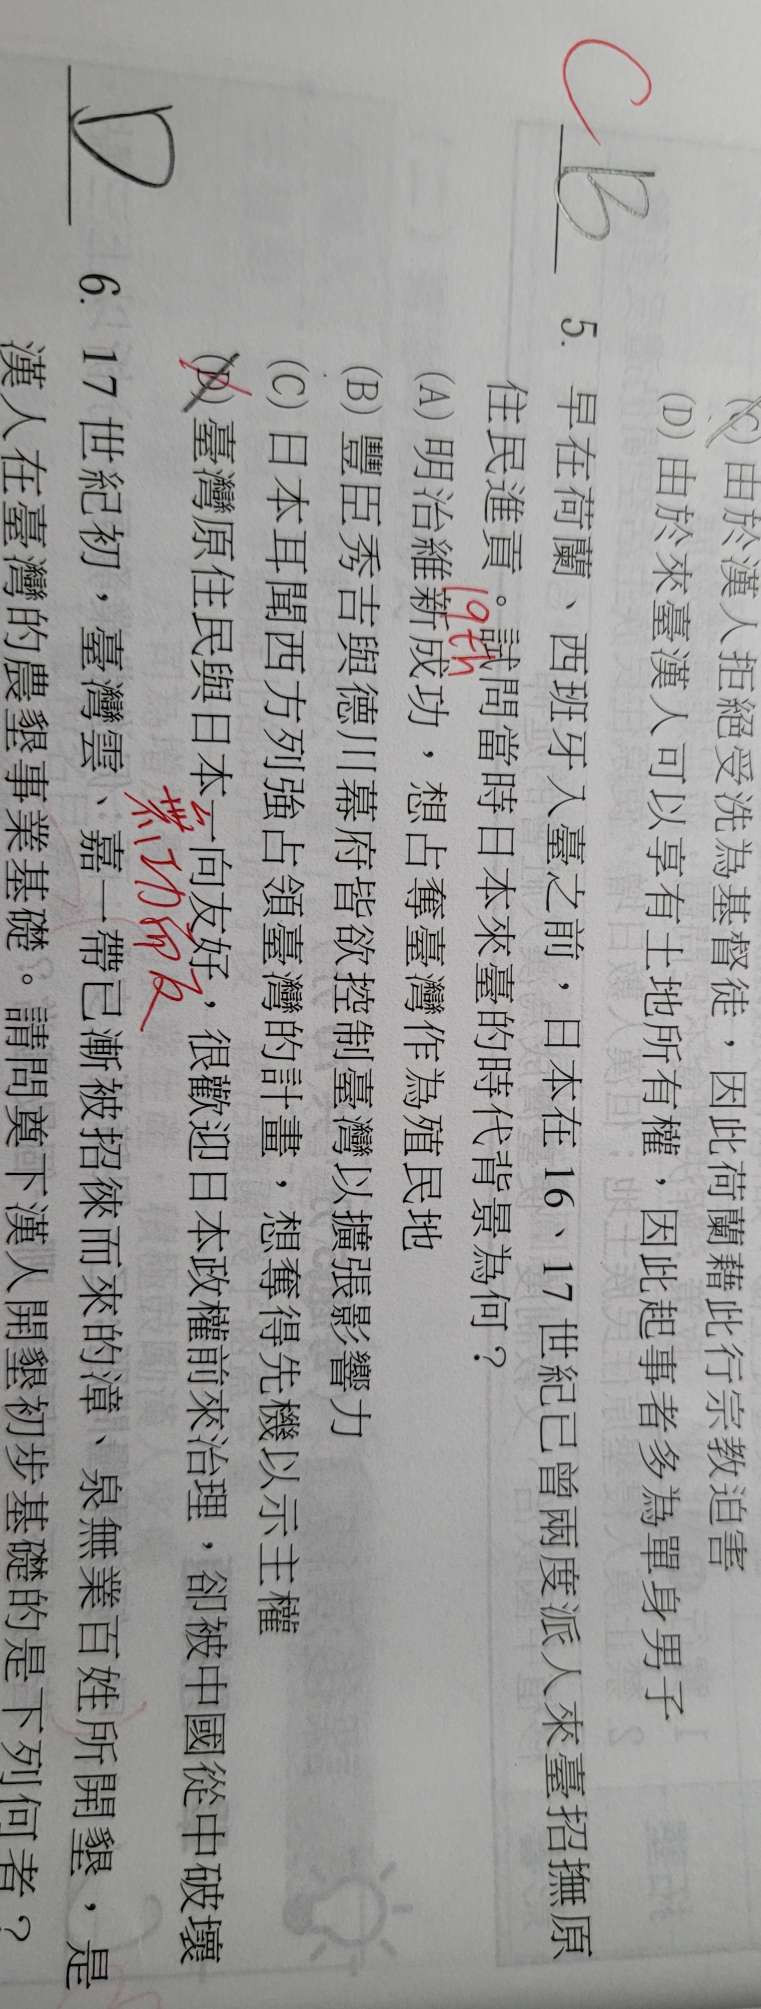 (C) 由於漢人拒絕受洗為基督徒，因此荷蘭藉此行宗教迫害
(D) 由於來臺漢人可以享有土地所有權，因此起事者多為單身男子
C B 5. 早在荷蘭、西班牙入臺之前，日本在 16、17 世紀已曾兩度派人來臺招撫原
住民進貢。試問當時日本來臺的時代背景為何？
19th
(A) 明治維新成功，想占奪臺灣作為殖民地
(B) 豐臣秀吉與德川幕府皆欲控制臺灣以擴張影響力
(C) 日本耳聞西方列強占領臺灣的計畫，想奪得先機以示主權
(D) 臺灣原住民與日本一向友好，很歡迎日本政權前來治理，卻被中國從中破壞
無功而返
D 6. 17 世紀初，臺灣雲、嘉一帶已漸被招徠而來的漳、泉無業百姓所開墾，是
漢人在臺灣的農墾事業基礎。請問奠下漢人開墾初步基礎的是下列何者？